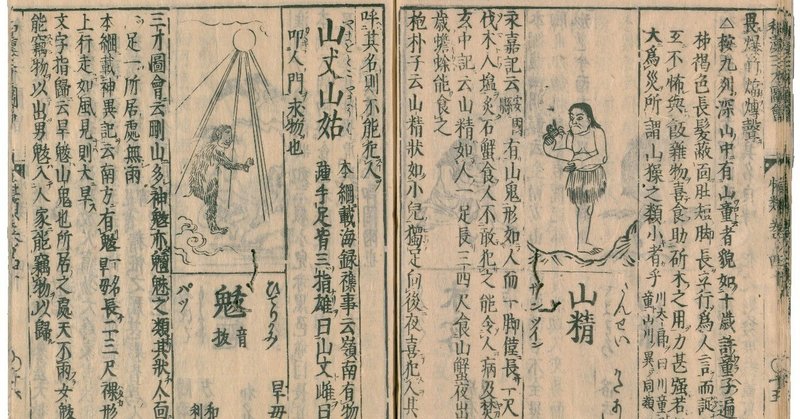 畏爆竹
△按九州深山中有山童者貌如十歲許童子遍
柹褐色長髮蔽面肚短脚長立行爲人言而訥
互不怖與飯雜物喜食助斫木之用力甚强若
大爲災所謂山𤢖之類小者乎
川太郎曰川童
山精
さんせい
サンツイン
永嘉記云安固縣有山鬼形如人而一脚僅長一尺
伐木人塩炙石蟹食人不敢犯之能令人病及焚
玄中記云山精如人一足長三四尺食山蟹夜出
歲蟾蜍能食之
抱朴子云山精狀如小兒獨足向後夜喜犯人其
呼其名則不能犯人
山丈山姑
本綱載海録襍事云嶺南有物
踵手足皆三指雄曰山丈雌曰
叩人門求物也
魃
音拔
ひでりがみ
パツ
旱母
三才圖會云剛山多神魃亦魑魅之類其狀人面
足一所居處無雨
本綱載神異記云南方有魃一名旱母長二三尺裸形
上行走如風見則大旱
文字指歸云旱魃山鬼也所居之處天不雨女魃
能竊物以出男魃入人家能竊物以歸